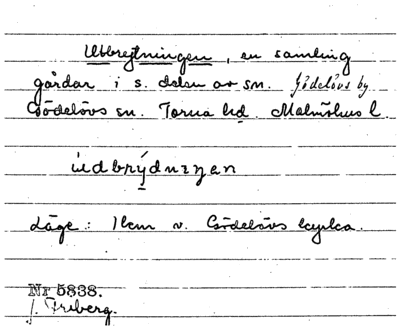 Utbrejtningen, en samling
gårdar i s. delen av sn. Gödelövs by
Gödelövs sn. Torna hd. Malmöhus l.
údbrýdnıŋen
Läge: 1 km v. Gödelövs kyrka.
Nr 5838.
J. Friberg.